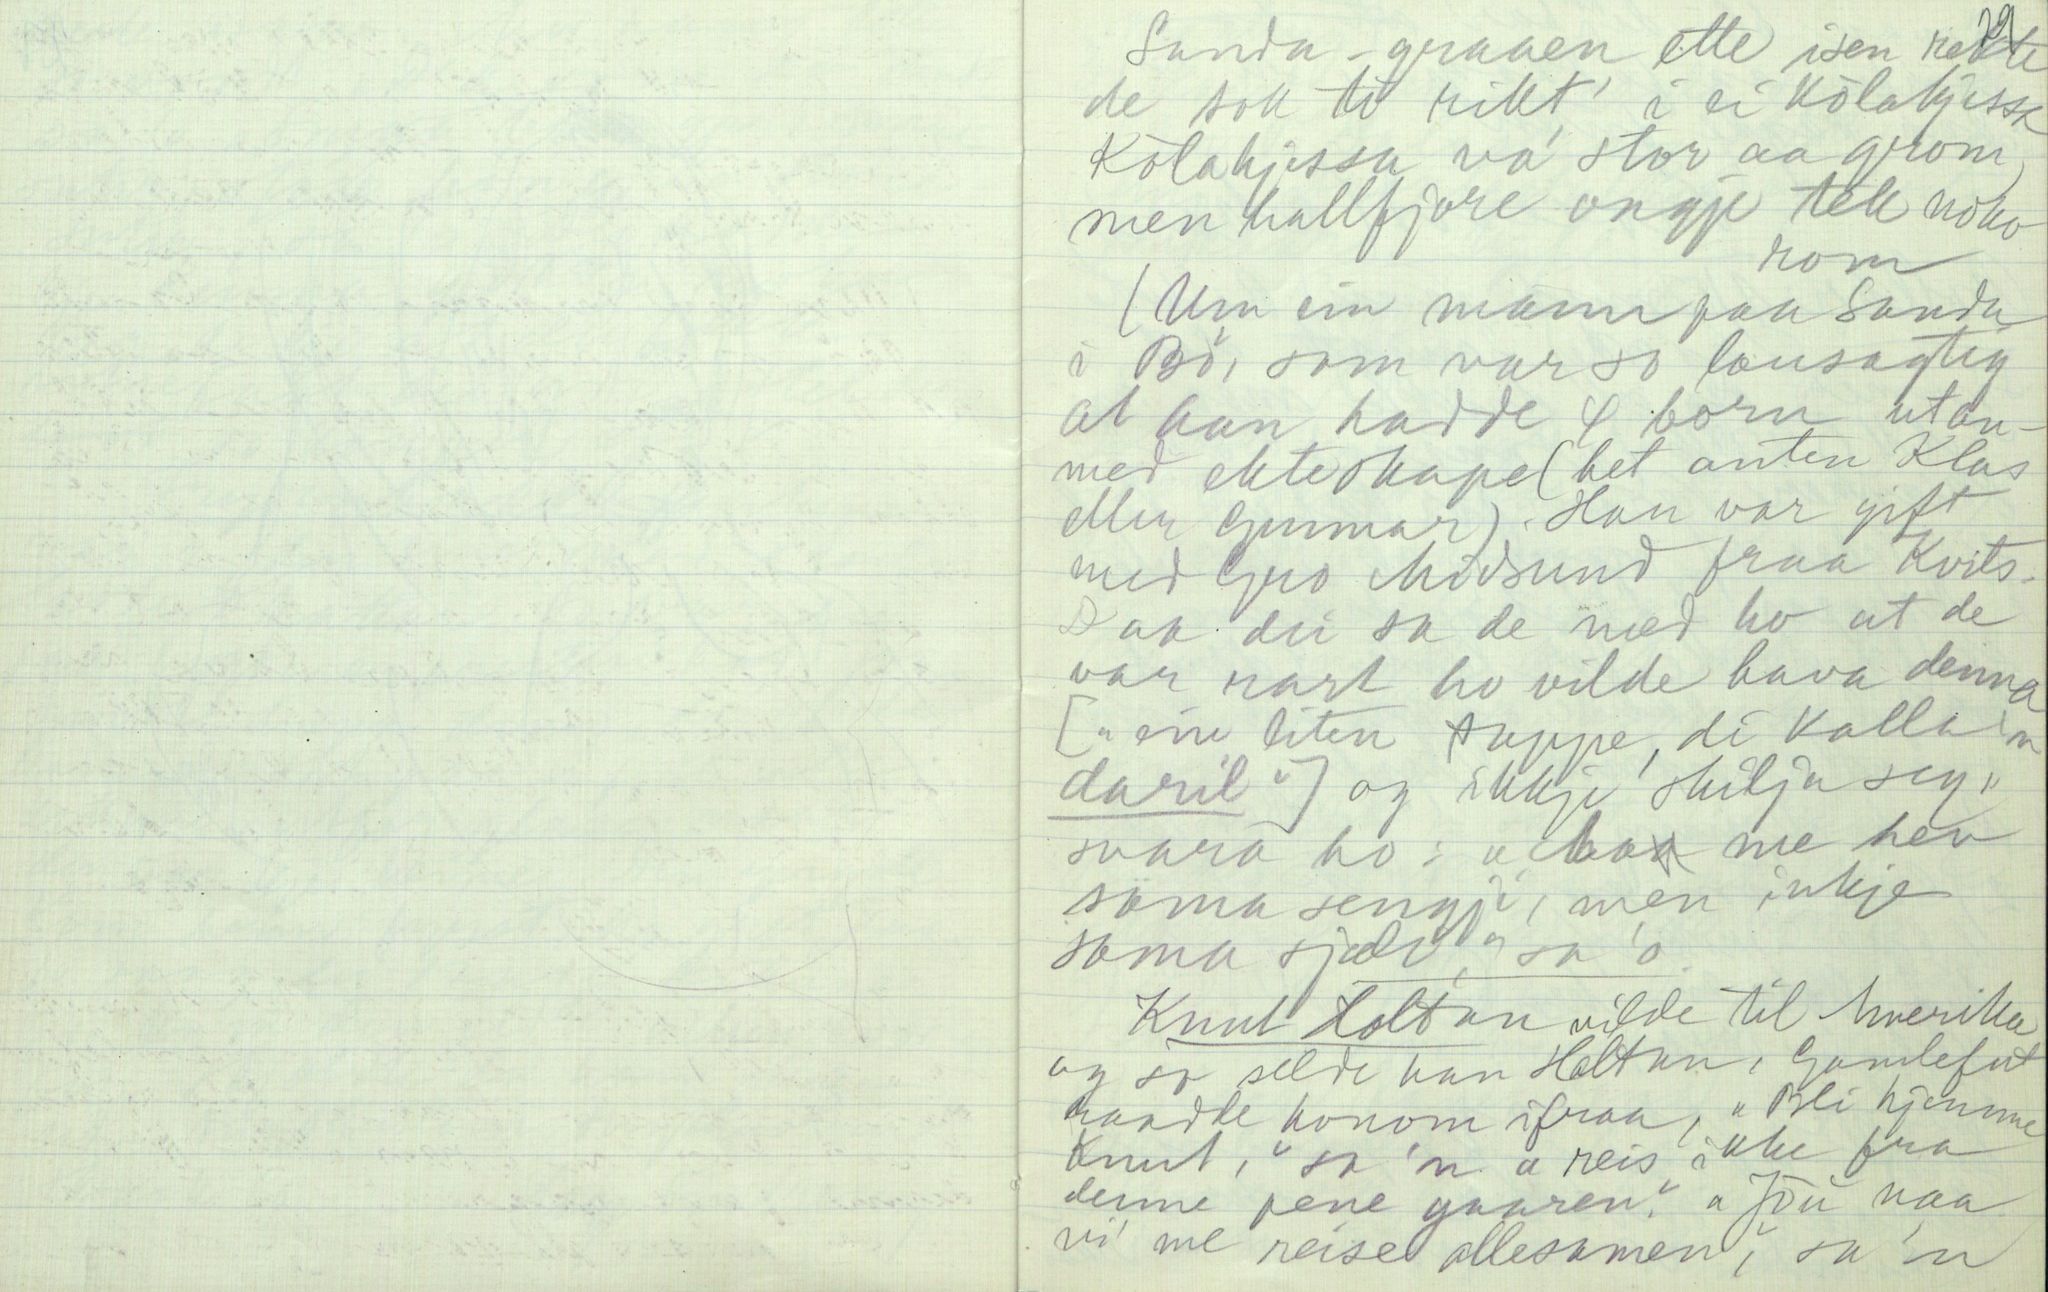 29
Sanda-graaen ette isen rekte
de sok ti rikt' i ei Kòlakjissa
Kòlakjissa va' stor aa grom,
men hallfjore ongji tek noko
rom
(Um ein mann paa Sanda
i Bö, som var so lausagtig
at han hadde 4 born utan-
med ekteskape (het anten Klas
eller Gunnar). Han var gift
med Gro Midsund fraa Kvits.
Daa dei sa de med ho at de
var rart ho vilde hava denna
["ein liten tuppe, di kalla'n
daril"] og ikkji skilja seg,
svara ho: " me hev
soma sengji, men inkje
soma sjæl," sa'o.
Knut Holtan vilde til Amerika
og so selde han Holtan, Gamlefut
raadde honom ifraa, "Bli hjemme
Knut," sa'n "reis ikke fra
denne pene gaaren." "Jou naa
vi' me reise allesamen," sa'n